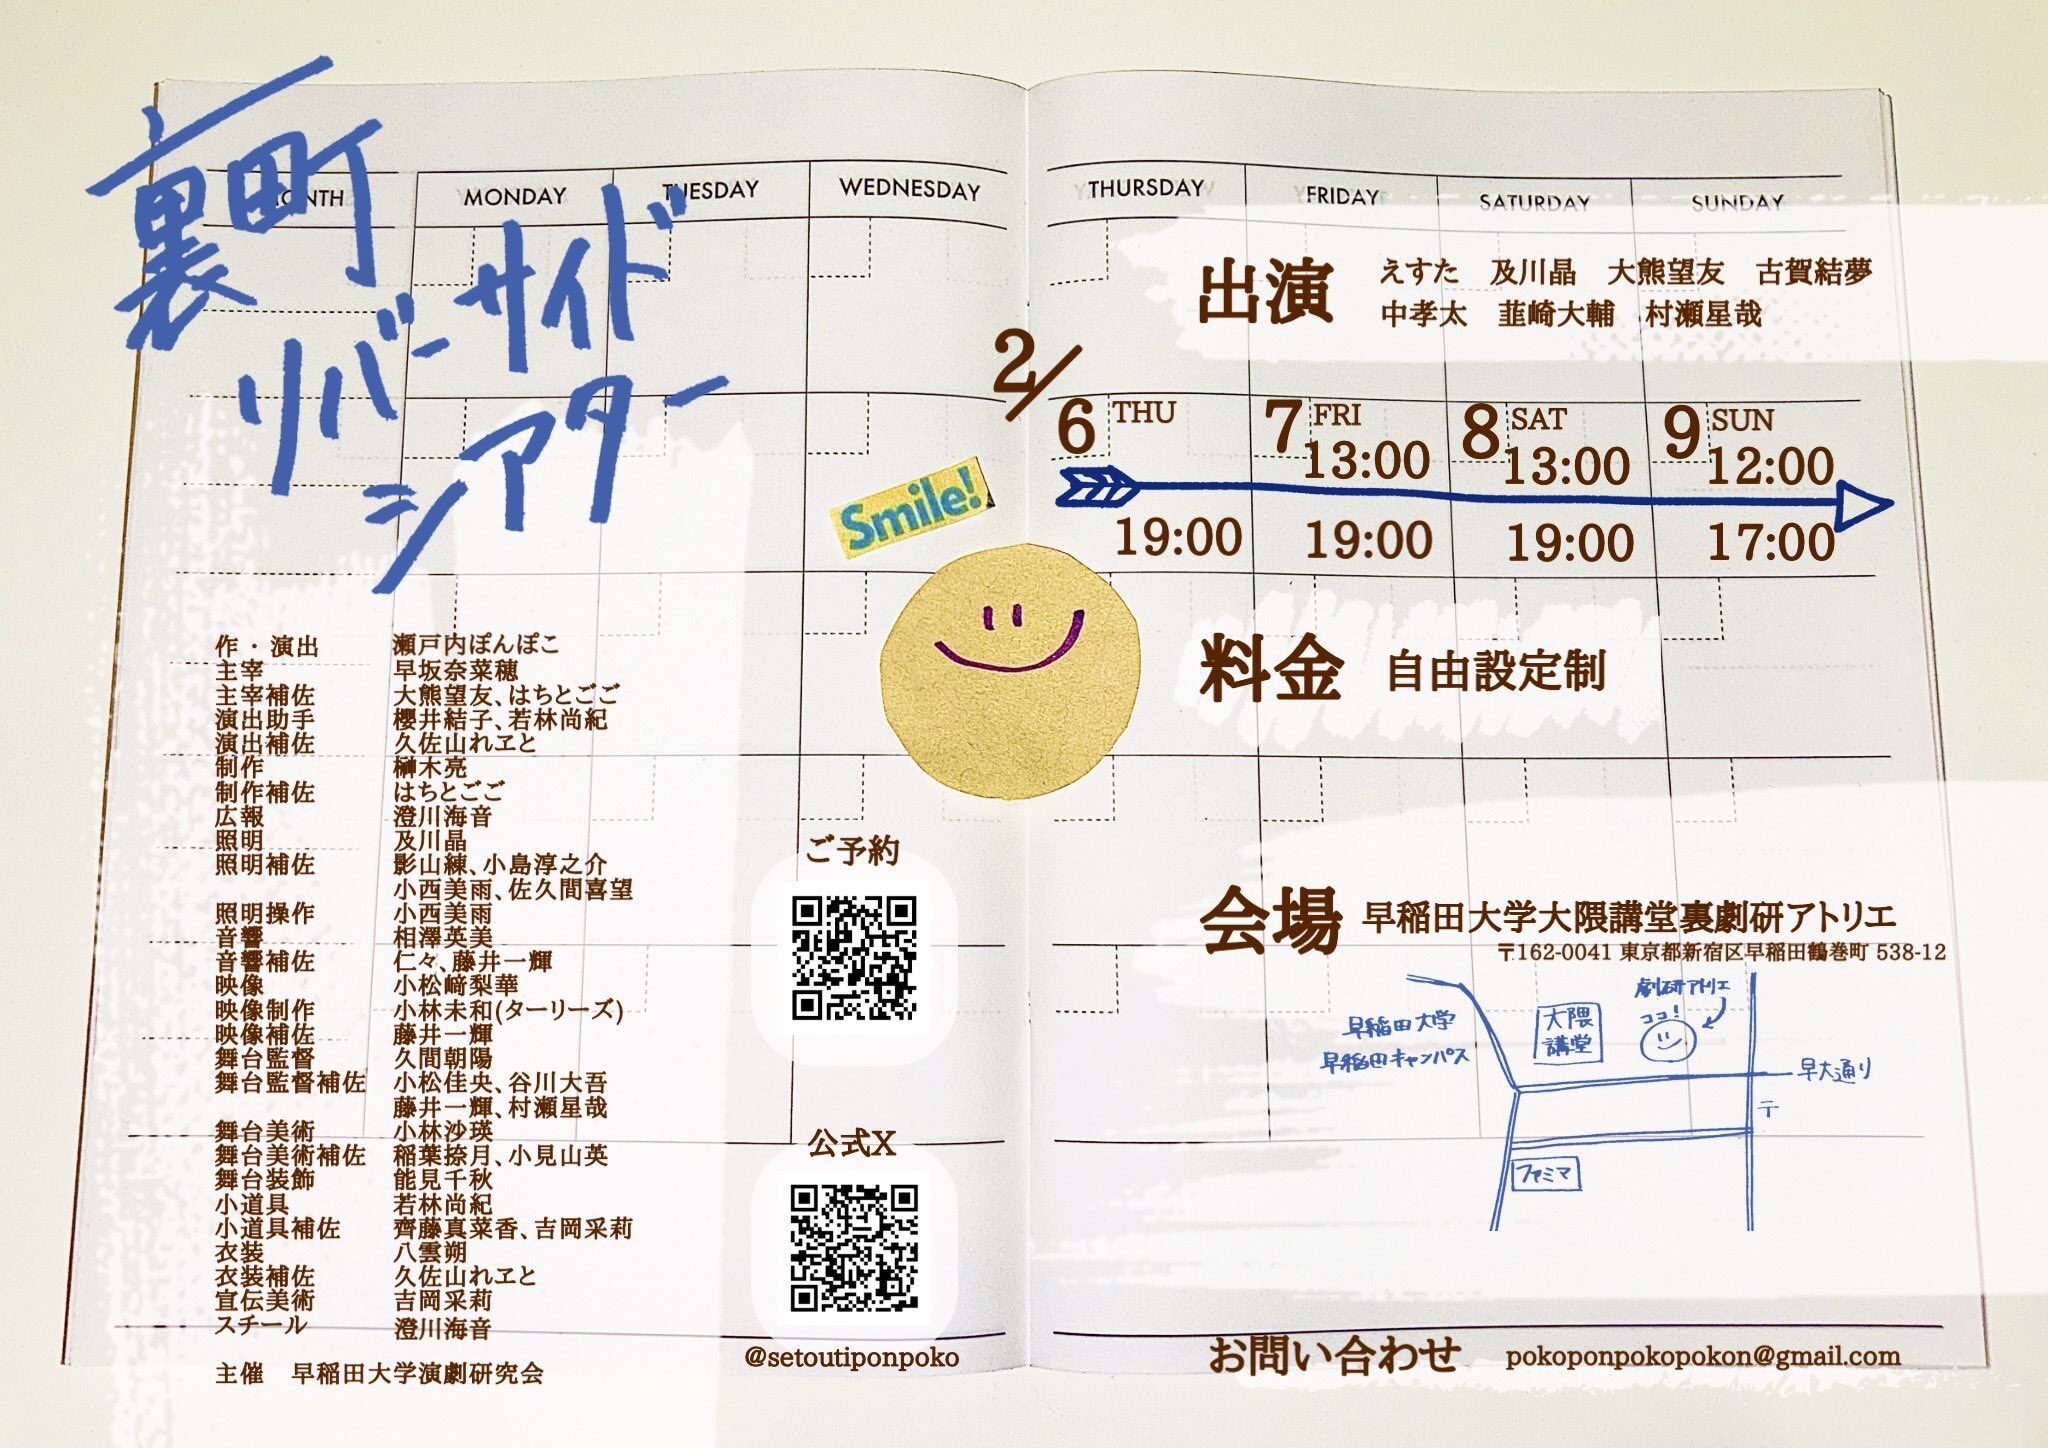 裏町
リバーサイド
シアター
MONTH
MONDAY
TUESDAY
WEDNESDAY
THURSDAY
FRIDAY
SATURDAY
SUNDAY
出演
えすた 及川晶 大熊望友 古賀結夢
中孝太 韮崎大輔 村瀬星哉
2/
6 THU
19:00
7 FRI
13:00
19:00
8 SAT
13:00
19:00
9 SUN
12:00
17:00
Smile!
料金 自由設定制
会場 早稲田大学大隈講堂裏劇研アトリエ
〒162-0041 東京都新宿区早稲田鶴巻町 538-12
劇研アトリエ
ココ!
大隈
講堂
早稲田大学
早稲田キャンパス
早大通り
〒
ファミマ
お問い合わせ pokoponpokopokon@gmail.com
作・演出 瀬戸内ぽんぽこ
主宰 早坂奈菜穂
主宰補佐 大熊望友、はちとごご
演出助手 櫻井結子、若林尚紀
演出補佐 久佐山れヱと
制作 榊木亮
制作補佐 はちとごご
広報 澄川海音
照明 及川晶
照明補佐 影山練、小島淳之介
小西美雨、佐久間喜望
照明操作 小西美雨
音響 相澤英美
音響補佐 仁々、藤井一輝
映像 小松﨑梨華
映像制作 小林未和(ターリーズ)
映像補佐 藤井一輝
舞台監督 久間朝陽
舞台監督補佐 小松佳央、谷川大吾
藤井一輝、村瀬星哉
舞台美術 小林沙瑛
舞台美術補佐 稲葉捺月、小見山英
舞台装飾 能見千秋
小道具 若林尚紀
小道具補佐 齊藤真菜香、吉岡采莉
衣装 八雲朔
衣装補佐 久佐山れヱと
宣伝美術 吉岡采莉
スチール 澄川海音
主催 早稲田大学演劇研究会
ご予約
公式X
@setoutiponpoko